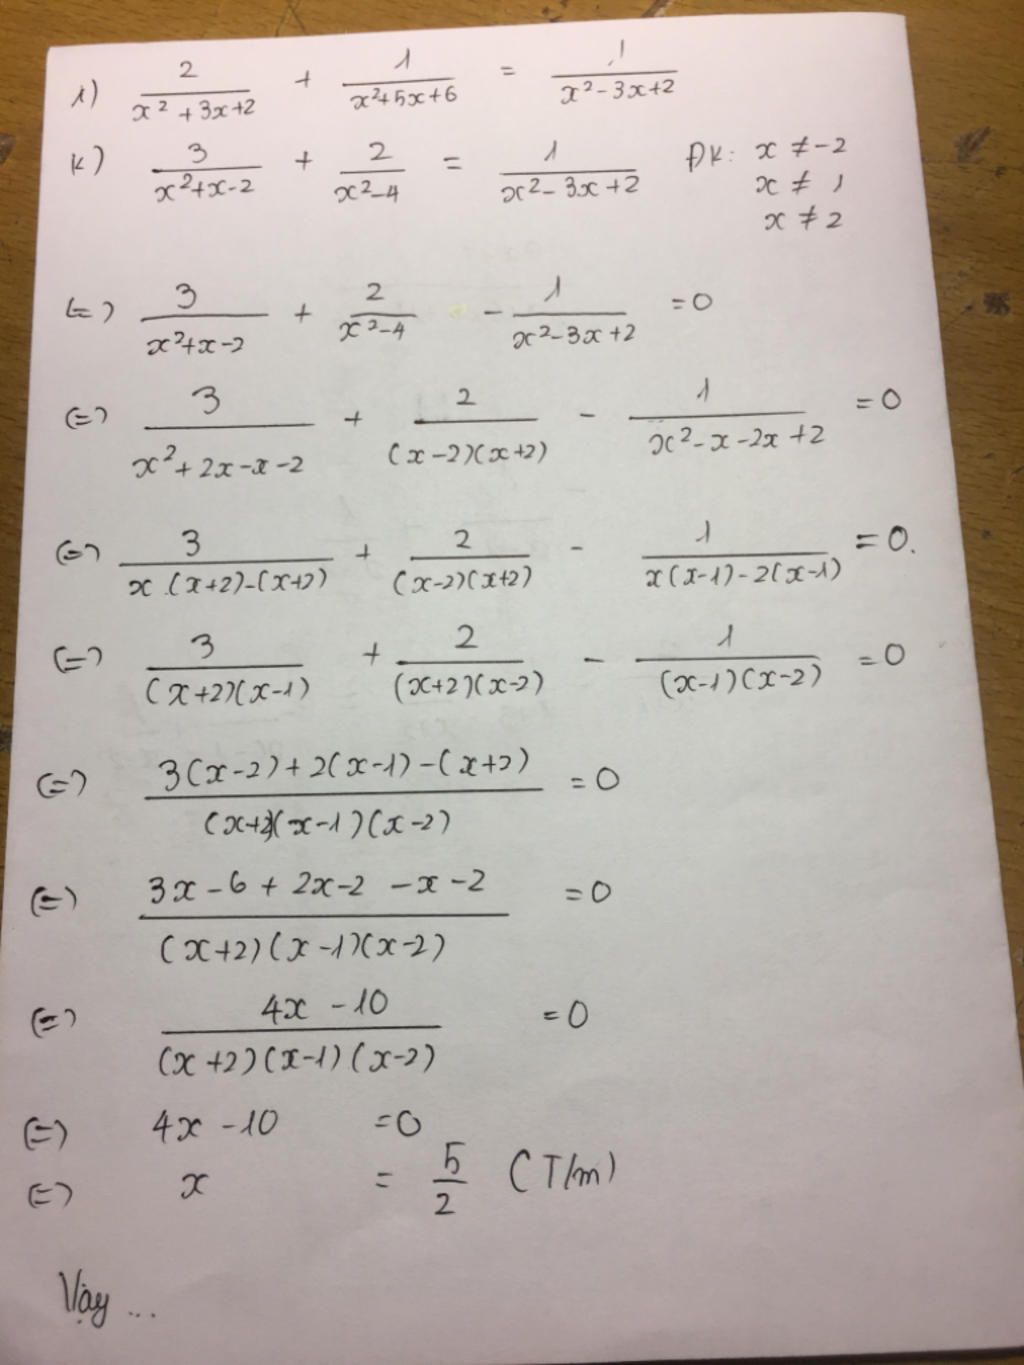 i) 2/(x² + 3x + 2) + 1/(x² + 5x + 6) = 1/(x² - 3x + 2)
k) 3/(x² + x - 2) + 2/(x² - 4) = 1/(x² - 3x + 2) ĐK: x ≠ -2
x ≠ 1
x ≠ 2
(=) 3/(x² + x - 2) + 2/(x² - 4) - 1/(x² - 3x + 2) = 0
(=) 3/(x² + 2x - x - 2) + 2/((x - 2)(x + 2)) - 1/(x² - x - 2x + 2) = 0
(=) 3/(x.(x + 2) - (x + 2)) + 2/((x - 2)(x + 2)) - 1/(x(x - 1) - 2(x - 1)) = 0.
(=) 3/((x + 2)(x - 1)) + 2/((x + 2)(x - 2)) - 1/((x - 1)(x - 2)) = 0
(=) (3(x - 2) + 2(x - 1) - (x + 2))/((x + 2)(x - 1)(x - 2)) = 0
(=) (3x - 6 + 2x - 2 - x - 2)/((x + 2)(x - 1)(x - 2)) = 0
(=) (4x - 10)/((x + 2)(x - 1)(x - 2)) = 0
(=) 4x - 10 = 0
(=) x = 5/2 (T/m)
Vậy ...